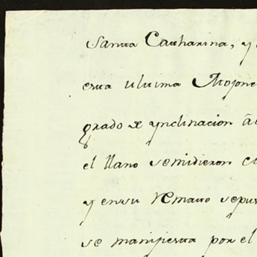 Santa Catharina, y
esta ultima Mojone
grado de ynclinacion á
el llano se midieron c
y en su Remate se pu
se manifiesta por el